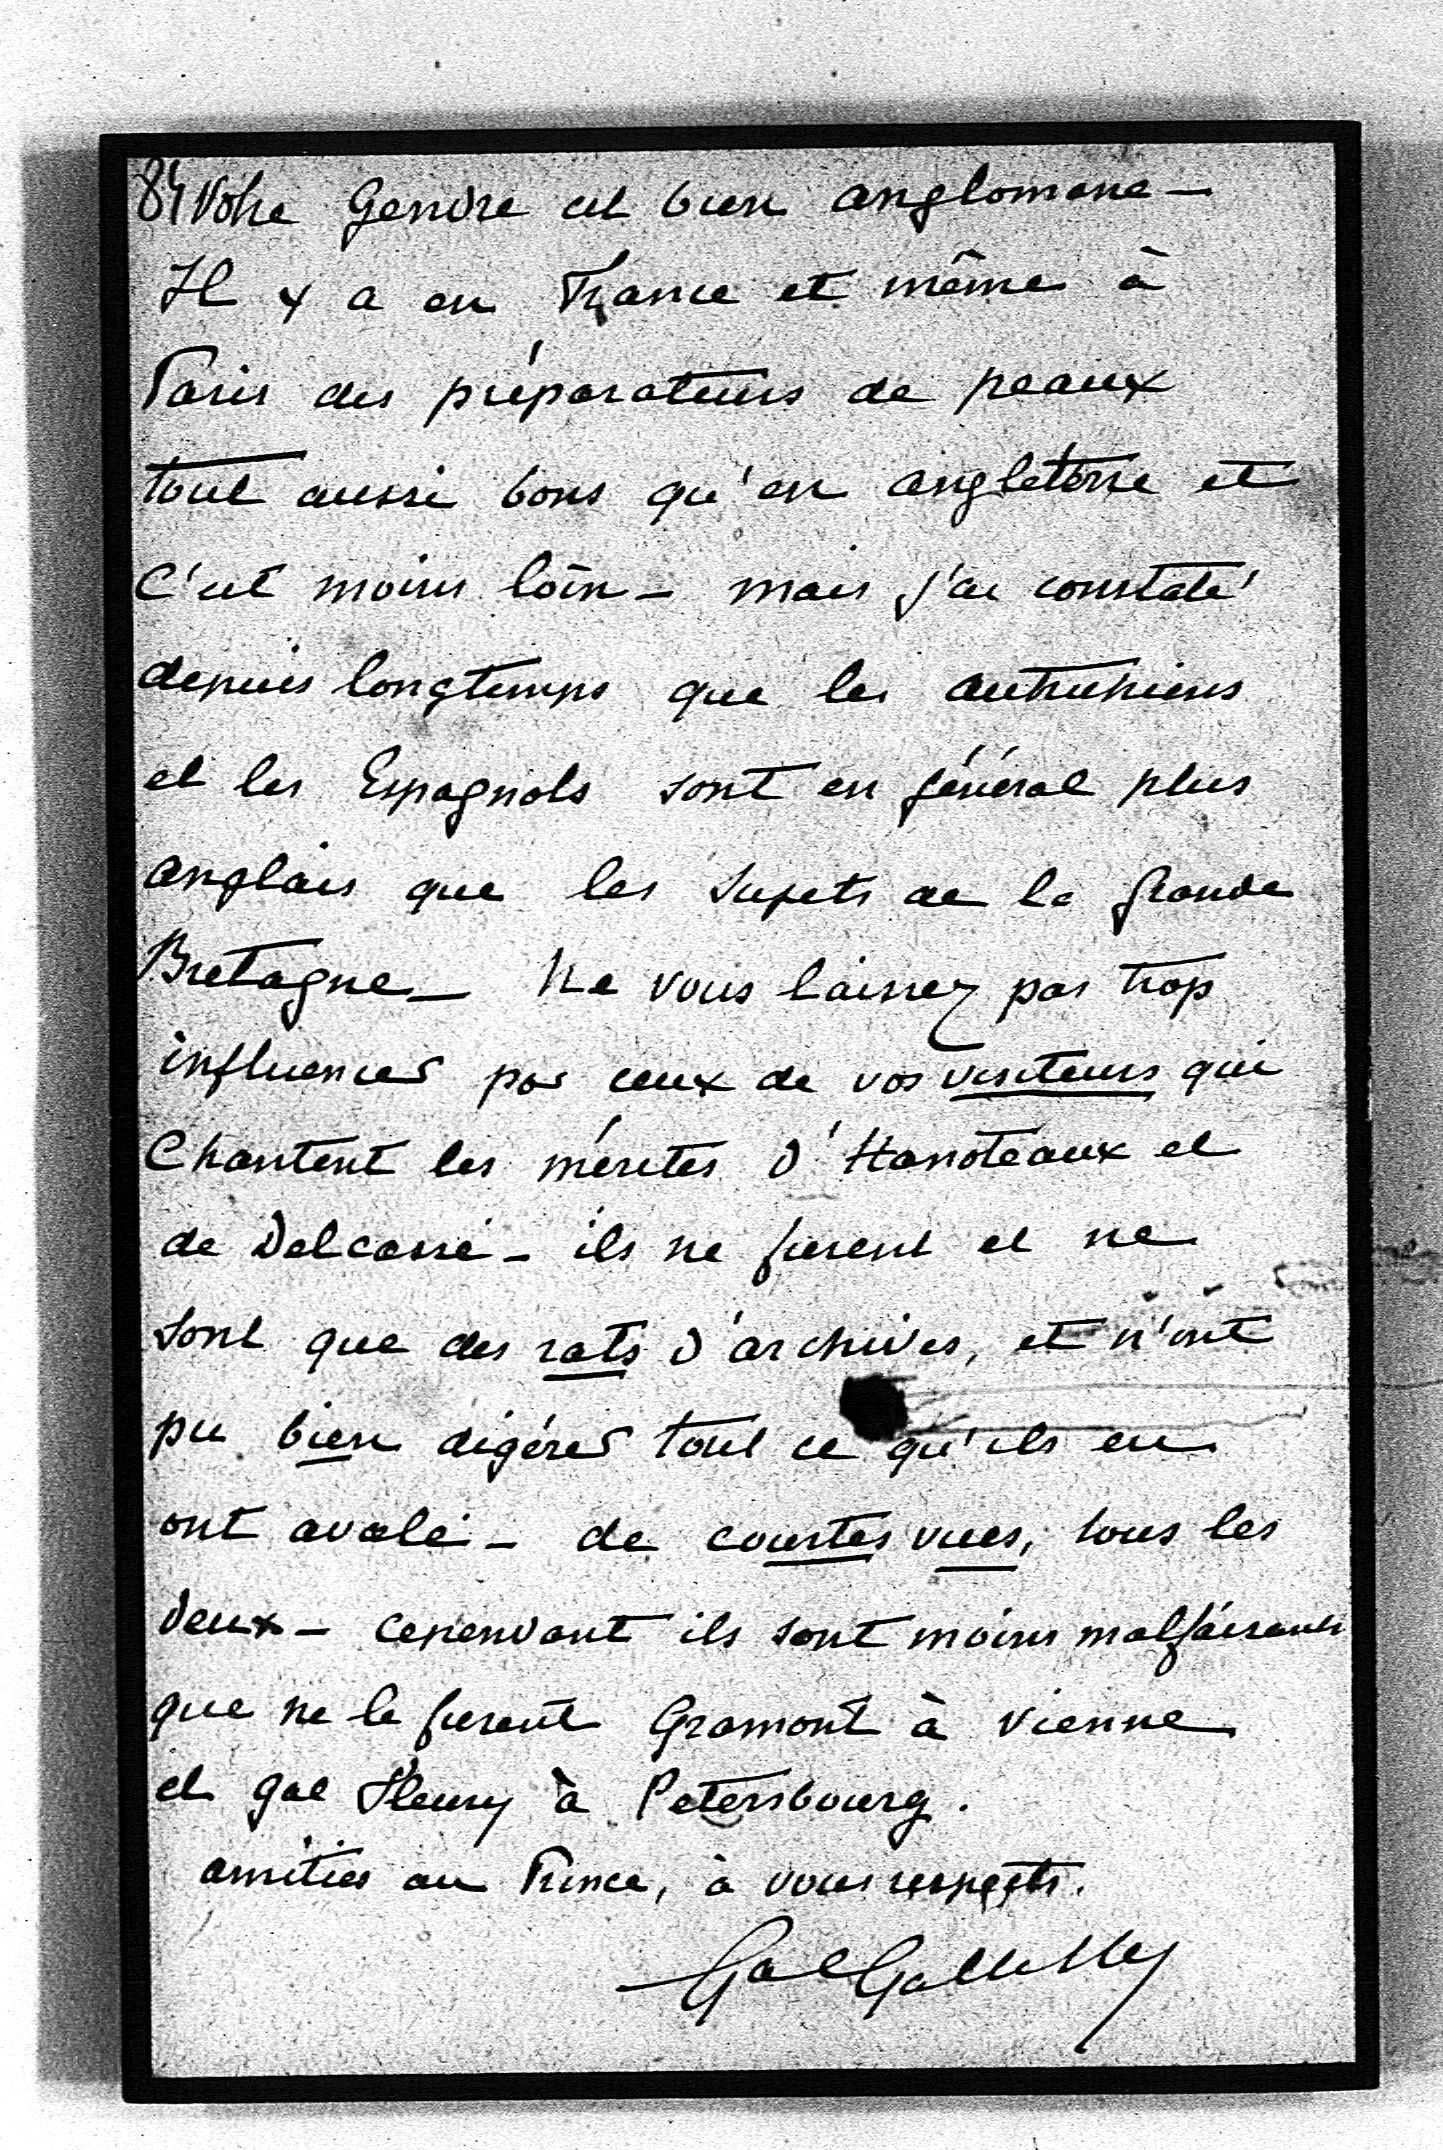 84 Votre Gendre est bien anglomane –
Il y a en France et même à
Paris des préparateurs de peaux
tout aussi bons qu'en angleterre et
C'est moins loin – mais j'ai constaté
depuis longtemps que les autrichiens
et les Espagnols sont en général plus
anglais que les sujets de la grande
Bretagne – Ne vous laissez pas trop
influencer par ceux de vos visiteurs qui
Chantent les mérites d'Hanoteaux et
de Delcassé – ils ne furent et ne
sont que des rats d'archives, et n'ont
pu bien digérer tout ce qu'ils en
ont avalé – de courtes vues, tous les
deux – cependant ils sont moins malfaisants
que ne le furent Gramont à Vienne
et gal Fleury à Petersbourg.
amitiés au Prince, à vous respects.
Gal Galliffet